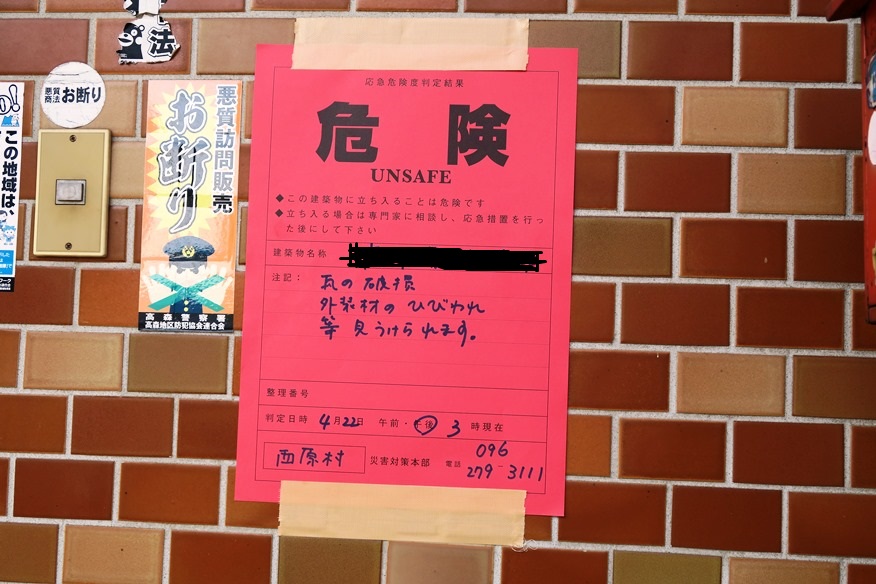 法
悪質
商法
お断り
この地域は、
悪質訪問販売
お断り
高森警察署
高森地区防犯協会連合会
応急危険度判定結果
危険
UNSAFE
◆この建築物に立ち入ることは危険です
◆立ち入る場合は専門家に相談し、応急措置を行っ
た後にして下さい
建築物名称
注記：
瓦の破損
外装材のひびわれ
等見うけられます。
整理番号
判定日時 4月22日 午前・午後 3時現在
西原村 災害対策本部 電話 096
279-3111